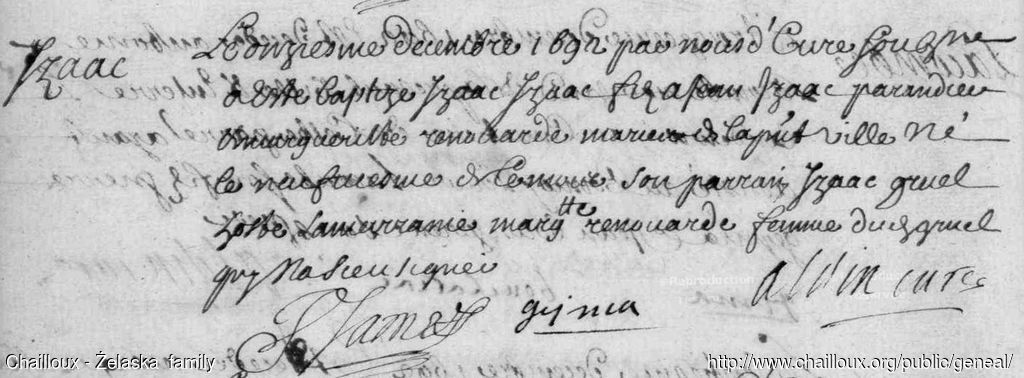 Izaac
Lonziesme decembre 1692 par nousd' Cure soubzne
a este baptize Izaac Izaac filz a Jean Izaac parandier
margueritte renouarde maries de la pñt ville né
le neufviesme dud mois son parrain Izaac gruel
hoste sa marraine marg<sup>tte</sup> renouarde femme dud gruel
qui na sceu signer
albin cure
Reproduction
Chailloux - Żelaska family
http://www.chailloux.org/public/geneal/